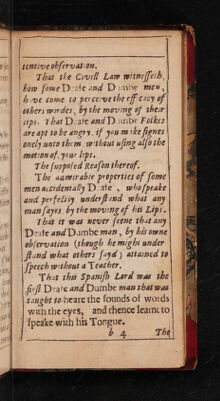 tentive observation.
That the Civill Law witnesseth,
how some Deafe and Dumbe men,
have come to perceive the efficacy of
others wordes, by the moving of their
Lips. That Deafe and Dumbe Folkes
are apt to be angry, if you make signes
onely unto them without using also the
motion of your lips.
The supposed Reason thereof.
The admirable properties of some
men accidentally Deafe, who speake
and perfectly understand what any
man sayes by the moving of his Lips.
That it was never seene that any
Deafe and Dumbe man, by his owne
observation (though he might under
stand what others sayd) attained to
speech without a Teacher.
That this Spanish Lord was the
first Deafe and Dumbe man that was
taught to heare the sounds of words
with the eyes, and thence learnt to
speake with his Tongue.
b 4 The